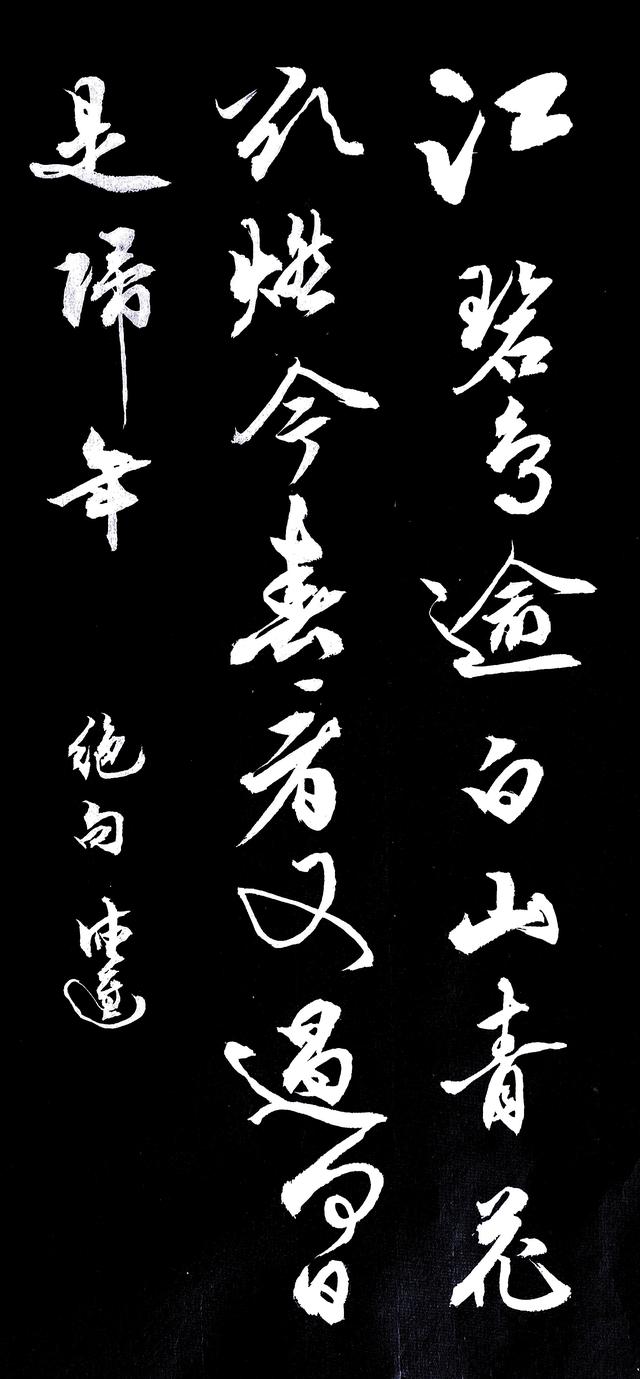 江碧鸟逾白山青花
欲燃今春看又過何日
是歸年
绝句